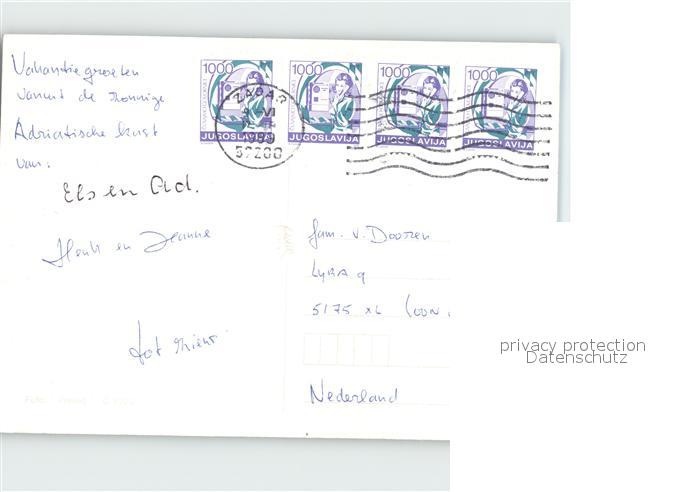 Vakantie groeten
vanuit de zonnige
Adriatische kust
van:
Els en Ad.
Henk en Jeanne
tot ziens
1000
JUGOSLAVIJA
1000
JUGOSLAVIJA
1000
JUGOSLAVIJA
1000
JUGOSLAVIJA
ZADAR
57200
fam. v. Dooren
Lyra 9
5175 XL Loon
Nederland
privacy protection
Datenschutz